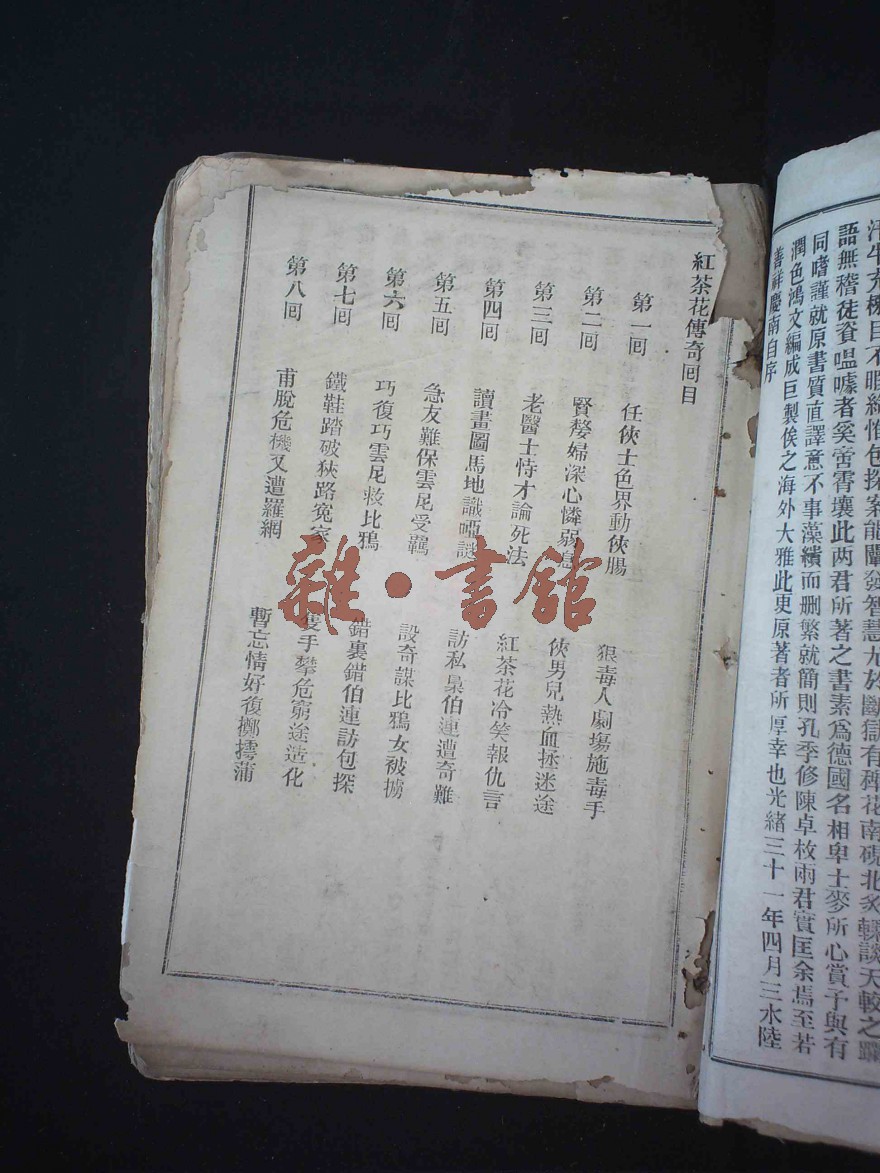 汗牛充棟目不暇給惟包探案能闡發智慧尤於斷獄有裨花南硯北炙輠談天較之
語無稽徒資嗢噱者奚啻霄壤此两君所著之書素爲德國名相卑士麥所心賞予與有
同嗜謹就原書質直譯意不事藻繢而删繁就簡則孔季修陳卓枚兩君實匡余焉至若
潤色鴻文編成巨製俟之海外大雅此更原著者所厚幸也光緒三十一年四月三水陸
善祥慶南自序
紅茶花傳奇囘目
第一囘 任俠士色界動俠腸 狠毒人劇塲施毒手
第二囘 賢嫠婦深心憐弱息 俠男兒熱血拯迷途
第三囘 老醫士恃才論死法 紅茶花冷笑報仇言
第四囘 讀畫圖馬地識啞謎 訪私梟伯連遭奇難
第五囘 急友難保雲尼受羈 設奇謀比鴉女被擄
第六囘 巧復巧雲尼救比鴉 錯裏錯伯連訪包探
第七囘 鐵鞋踏破狹路寃家 隻手攀危窮途造化
第八囘 甫脫危機又遭羅網 暫忘情好復擲摴蒲
雜·書館